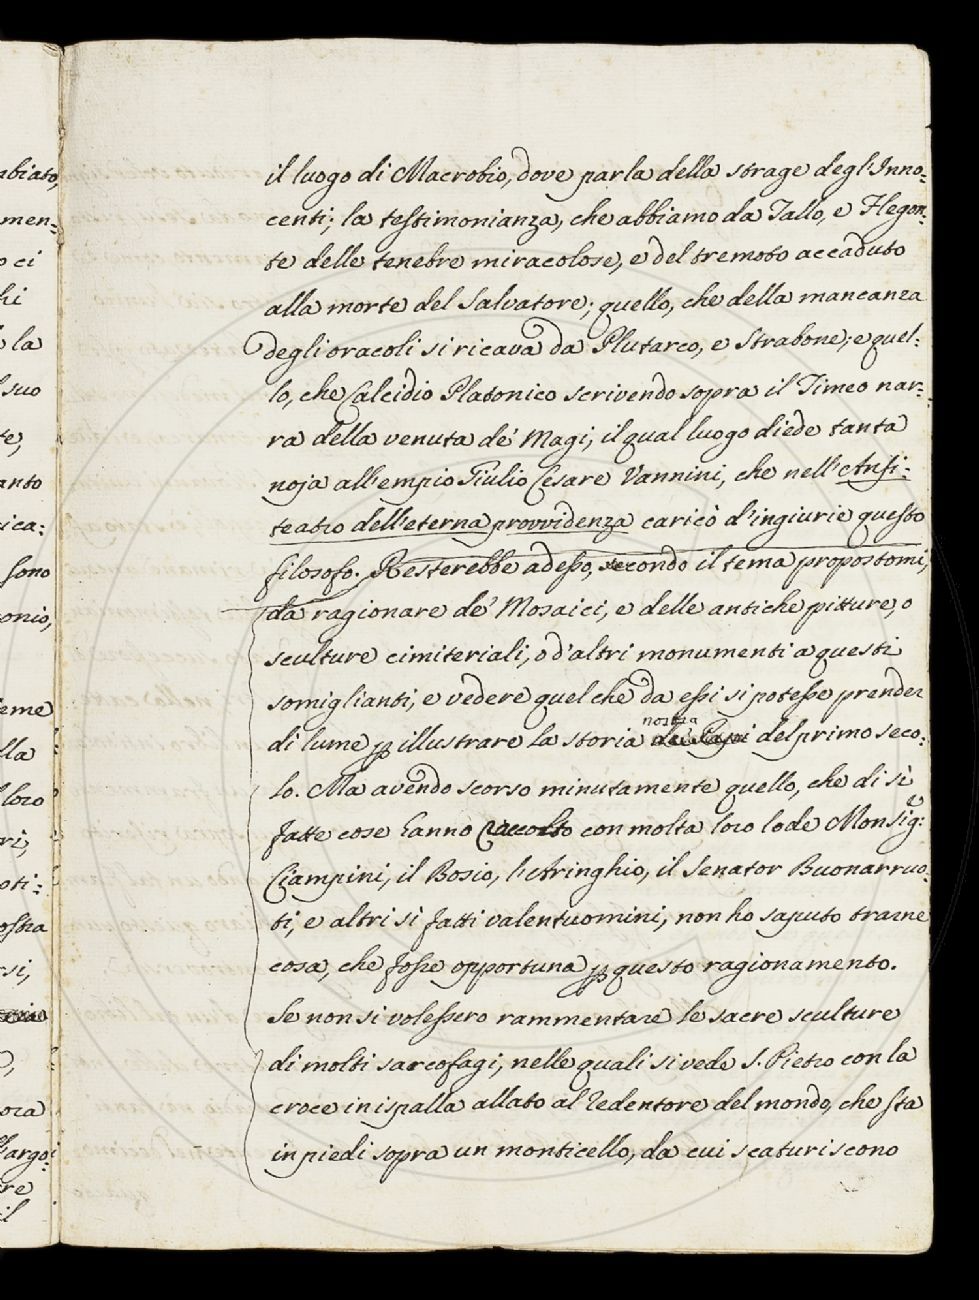 il luogo di Macrobio, dove parla della strage degl'Inno=
centi; la testimonianza, che abbiamo da Tallo, e Flegon=
te delle tenebre miracolose, e del tremoto accaduto
alla morte del Salvatore; quello, che della mancanza
degli oracoli si ricava da Plutarco, e Strabone; e quel=
lo, che Calcidio Platonico scrivendo sopra il Timeo nar=
ra della venuta de' Magi, il qual luogo diede tanta
noja all'empio Giulio Cesare Vannini, che nell'Anfi=
teatro dell'eterna provvidenza caricò d'ingiurie questo
filosofo. Resterebbe adesso, secondo il tema propostomi,
da ragionare de' Mosaici, e delle antiche pitture, o
sculture cimiteriali, o d'altri monumenti a questi
somiglianti, e vedere quel che da essi si potesse prender
di lume p illustrare la storia nostra de' Papi del primo seco=
lo. Ma avendo scorso minutamente quello, che di sì
fatte cose hanno raccolto con molta loro lode Monsig.r
Ciampini, il Bosio, l'Aringhio, il Senator Buonarruo=
ti, e altri sì fatti valentuomini, non ho saputo trarne
cosa, che fosse opportuna p questo ragionamento.
Se non si volessero rammentare le sacre sculture
di molti sarcofagi, nelle quali si vede S. Pietro con la
croce in ispalla allato al Redentore del mondo, che sta
in piedi sopra un monticello, da cui scaturiscono
abiato,
men=
o ci
hi
la
suo
te,
anto
ica:
sono
onio,
eme
lla
loro
ri,
oti=
ostra
rsi,
ora
argo=
re
il